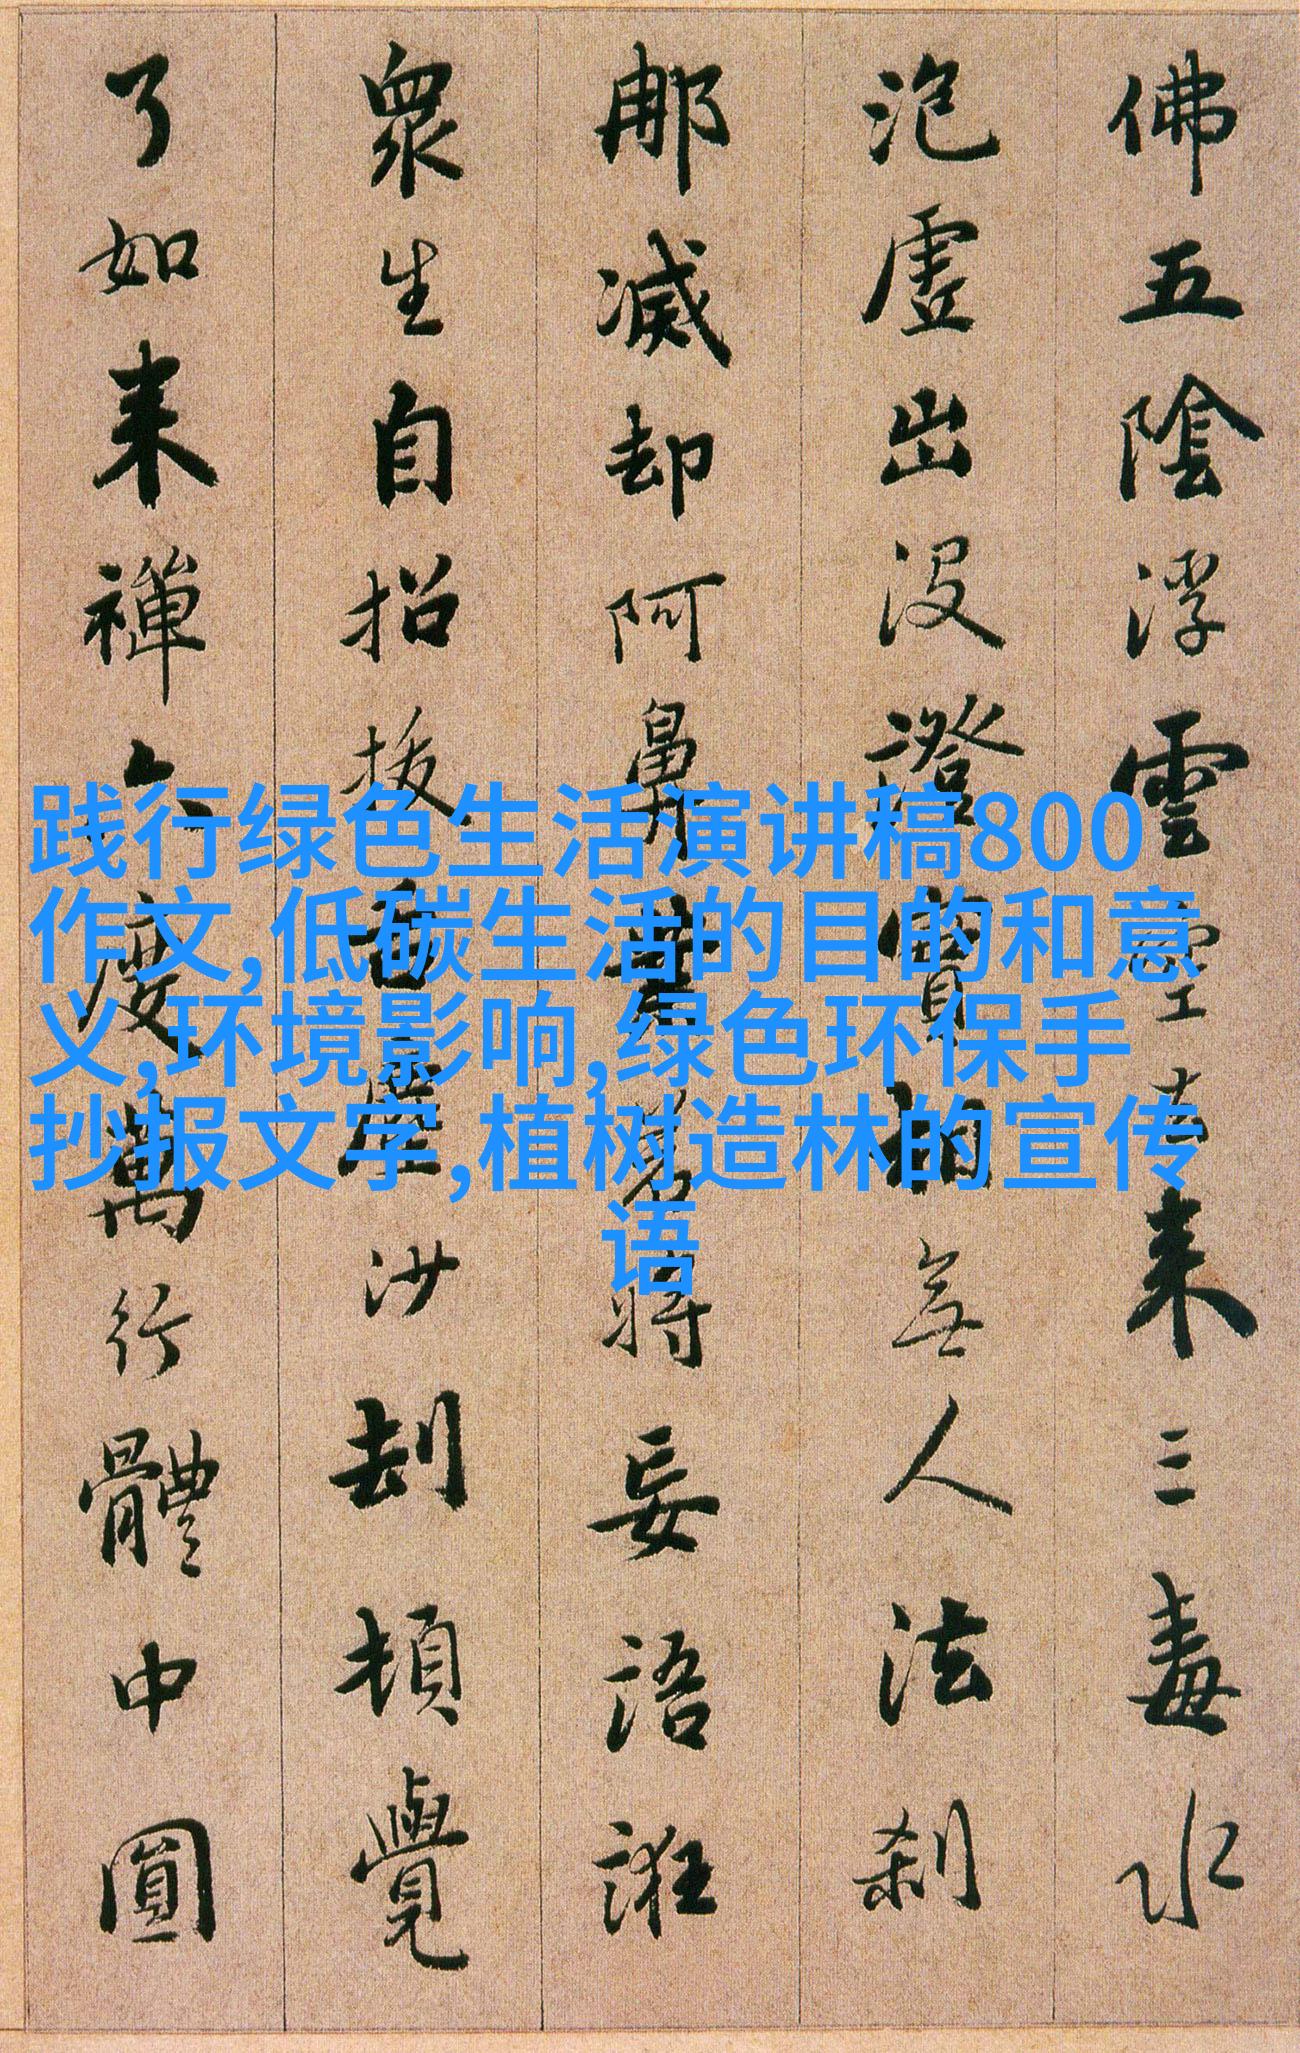 佛五陰浮雲空去来三毒水
泡虛出没證實相無人法刹
那滅却阿鼻業若將妄語誑
衆生自招拔舌塵沙劫頓覺
了如来禪六度萬行體中圓
践行绿色生活演讲稿800
作文,低碳生活的目的和意
义,环境影响,绿色环保手
抄报文字,植树造林的宣传
语